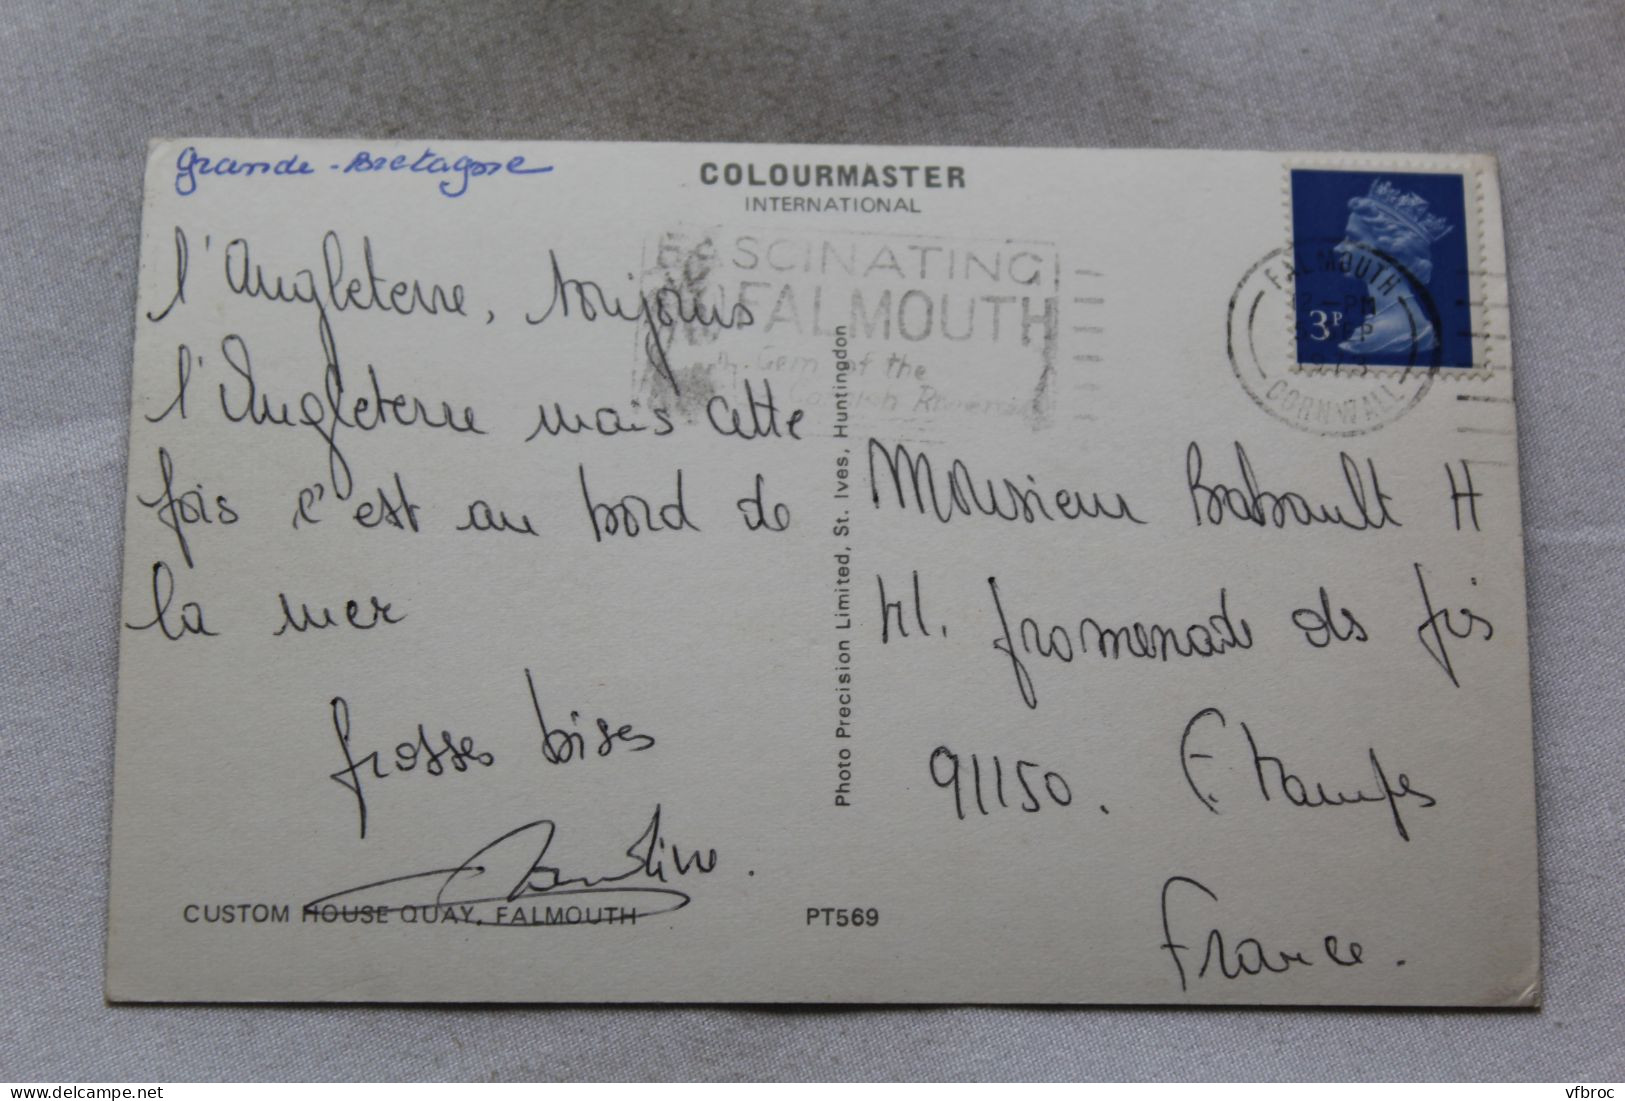 Grande-Bretagne
COLOURMASTER
INTERNATIONAL
l'Angleterre, toujours
l'Angleterre mais cette
fois c'est au bord de
la mer
grosses bises
CUSTOM HOUSE QUAY, FALMOUTH
PT569
Photo Precision Limited, St. Ives, Huntingdon
FASCINATING
FALMOUTH
Gem of the
Cornish Riviera
FALMOUTH
12-PM
SEP
CORNWALL
3P
Monsieur Brabault H
41. promenade des prés
91150. Etampes
France.
vfbroc
delcampe.net